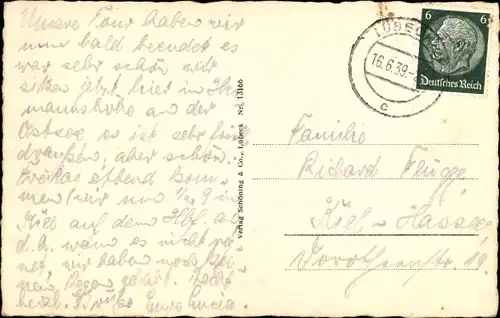 Unsere Tour haben wir
nun bald beendet es
war sehr schön wir
sitzen jetzt hier in
mannshöhe an der
Ostsee es ist sehr
draußen, aber schön.
abend kom-
men wir um 1/2 9 in
Kiel auf dem Hbf. an
d.h. wenn es nicht
wir haben noch
Regen gehabt. Recht
herzl. Grüße Eure Lucia.
Verlag Schöning & Co., Lübeck Nr. 13166
LÜBECK
16.6.39.
c
6 6
Deutsches Reich
Familie
Richard Flügge
Kiel-Hassee
Dorotheenstr. 19.